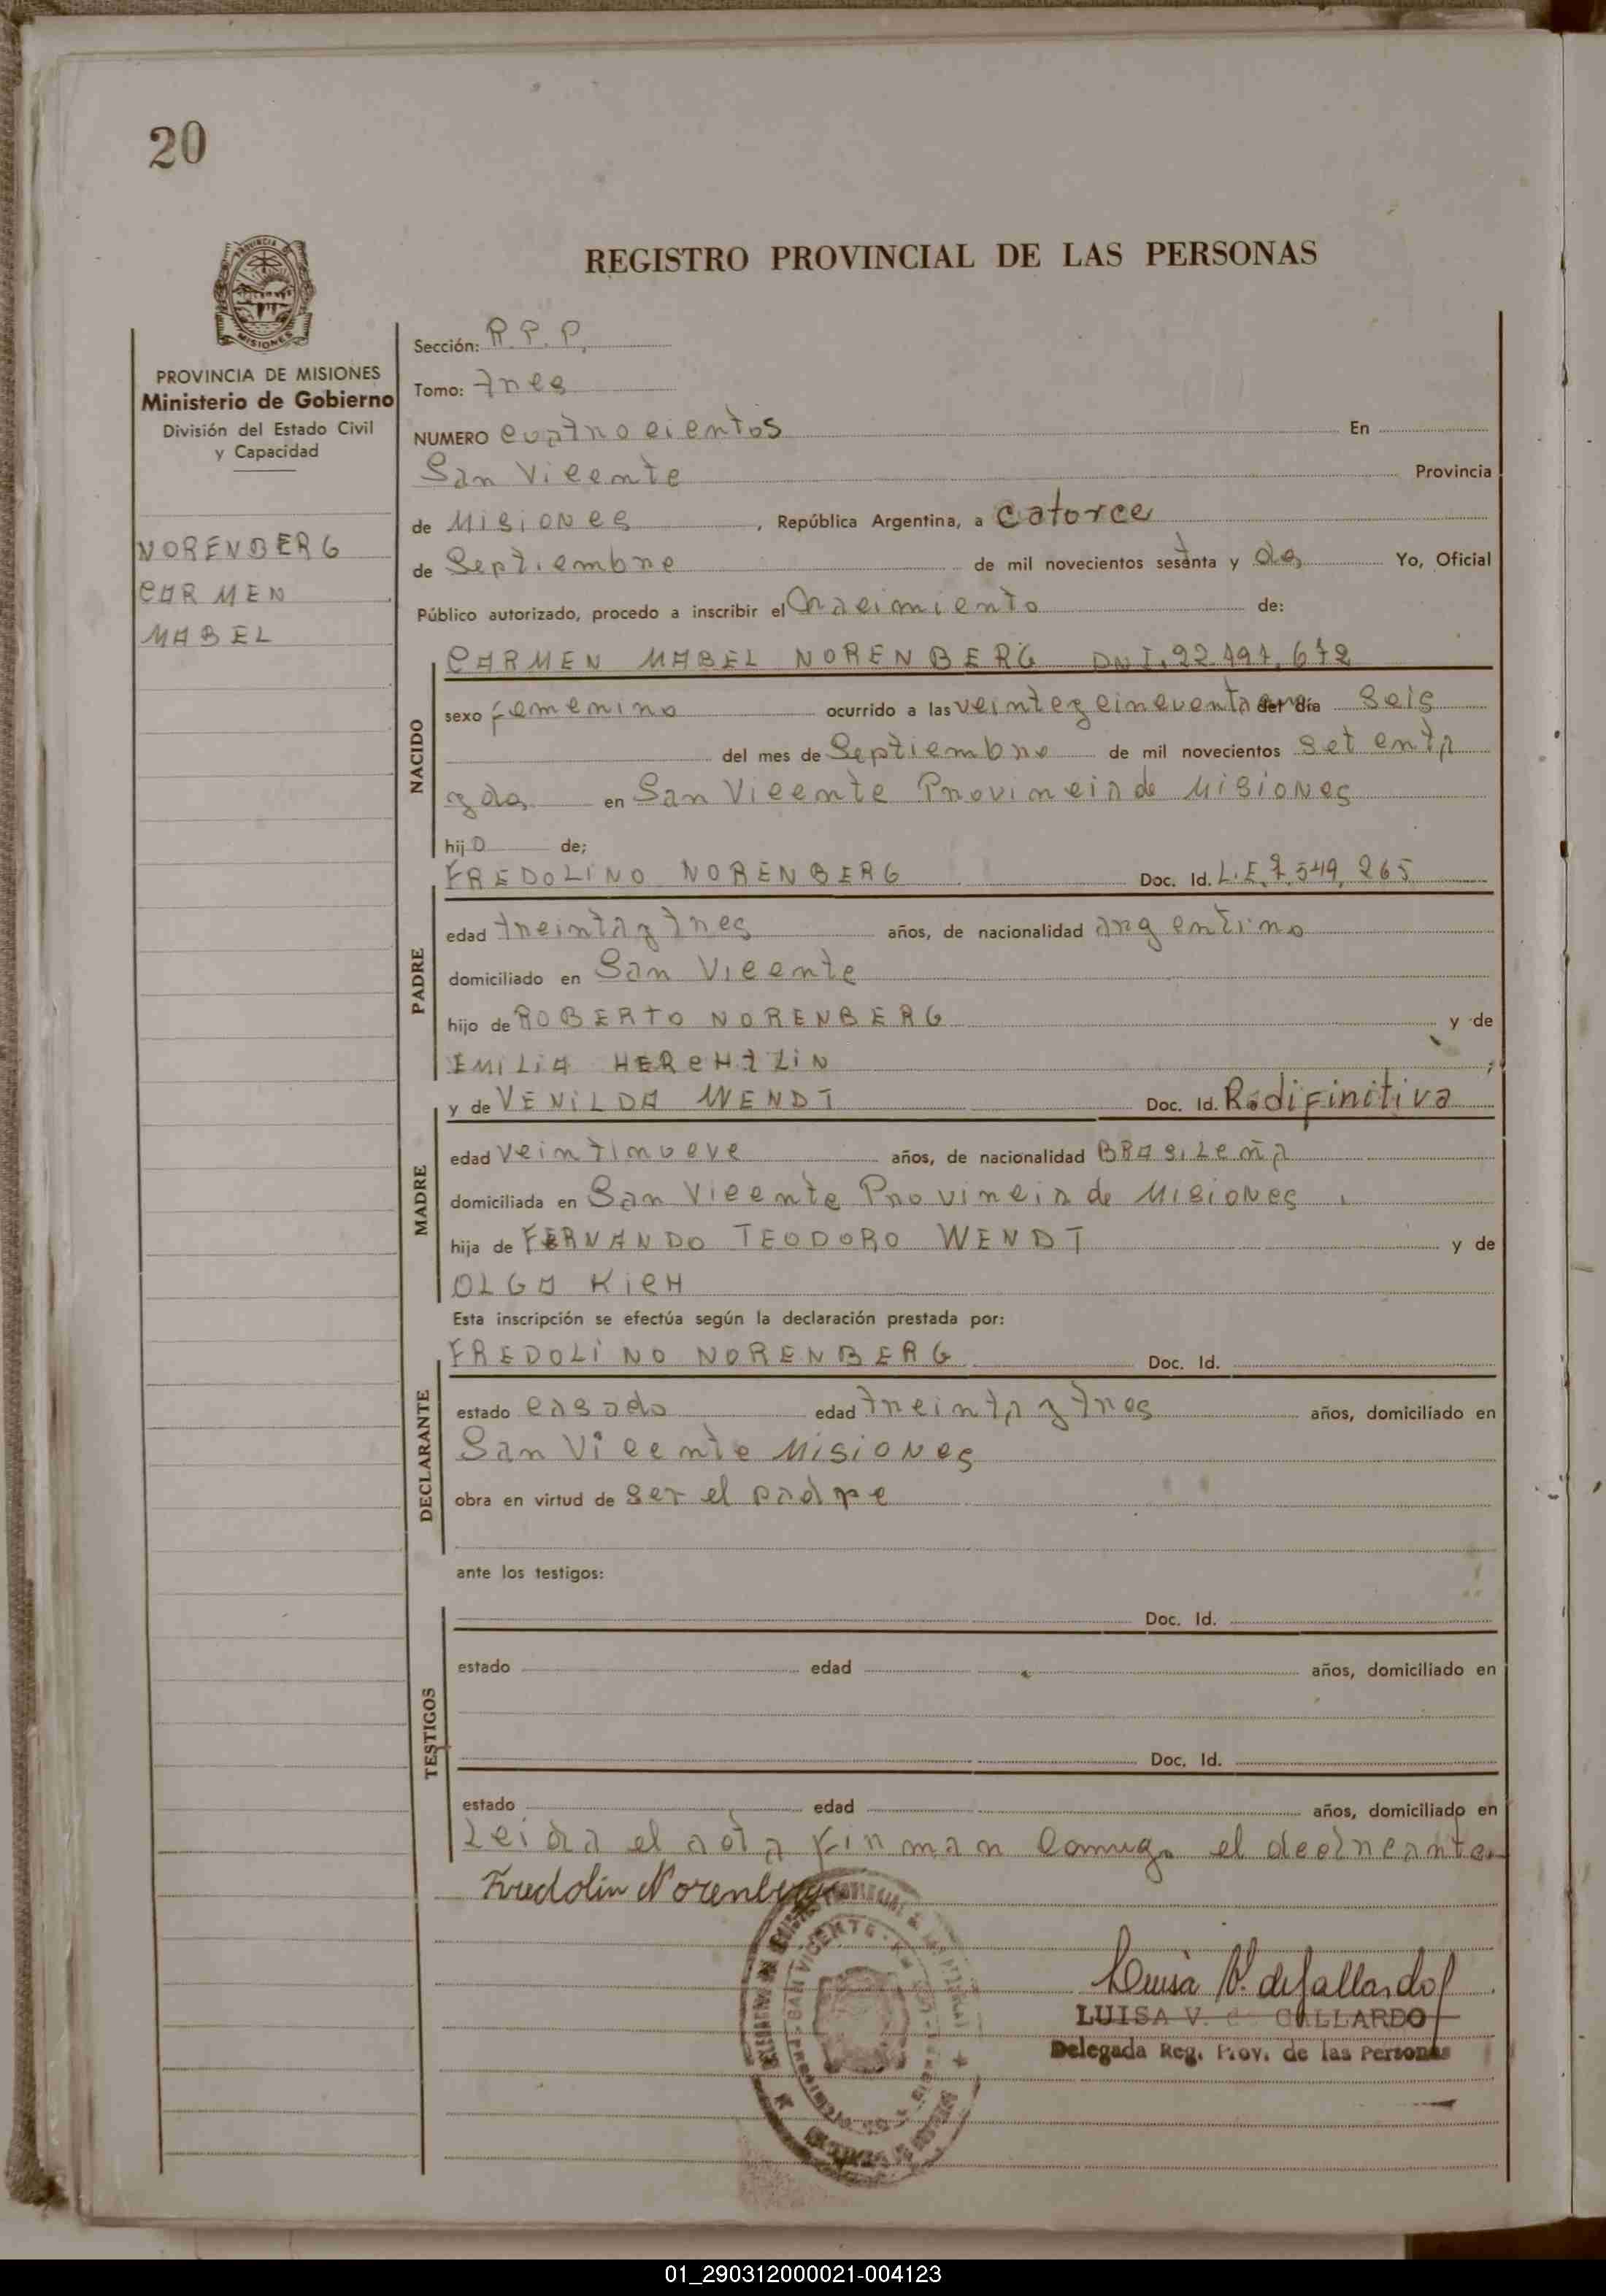 20
REGISTRO PROVINCIAL DE LAS PERSONAS
PROVINCIA DE MISIONES
Ministerio de Gobierno
División del Estado Civil
y Capacidad
NORENBERG
CARMEN
MABEL
Sección: R.P.P.
Tomo: tres
NUMERO cuatrocientos En
San Vicente Provincia
de Misiones, República Argentina, a catorce
de Septiembre de mil novecientos sesenta y dos Yo, Oficial
Público autorizado, procedo a inscribir el nacimiento de:
NACIDO
CARMEN MABEL NORENBERG DNI.
sexo femenino ocurrido a las del día seis
del mes de Septiembre de mil novecientos setenta
y dos en San Vicente Provincia de Misiones
hijo de;
PADRE
FREDOLINO NORENBERG Doc. Id. L.E. 7.549.265
edad treinta y tres años, de nacionalidad argentino
domiciliado en San Vicente
hijo de ROBERTO NORENBERG y de
EMILIA ;
MADRE
y de VENILDA WENDT Doc. Id. Radifinitiva
edad veintinueve años, de nacionalidad BRASILeñA
domiciliada en San Vicente Provincia de Misiones
hija de FERNANDO TEODORO WENDT y de
OLGA KieH
Esta inscripción se efectúa según la declaración prestada por:
DECLARANTE
FREDOLINO NORENBERG Doc. Id.
estado casado edad treinta y tres años, domiciliado en
San Vicente Misiones
obra en virtud de ser el padre
ante los testigos:
TESTIGOS
Doc. Id.
estado edad años, domiciliado en
Doc. Id.
estado edad años, domiciliado en
Leida el acta firman comigo el
Fredolin Norenberg
Luisa V. de Gallardo
LUISA V. de GALLARDO
Delegada Reg. Prov. de las Personas
01_290312000021-004123